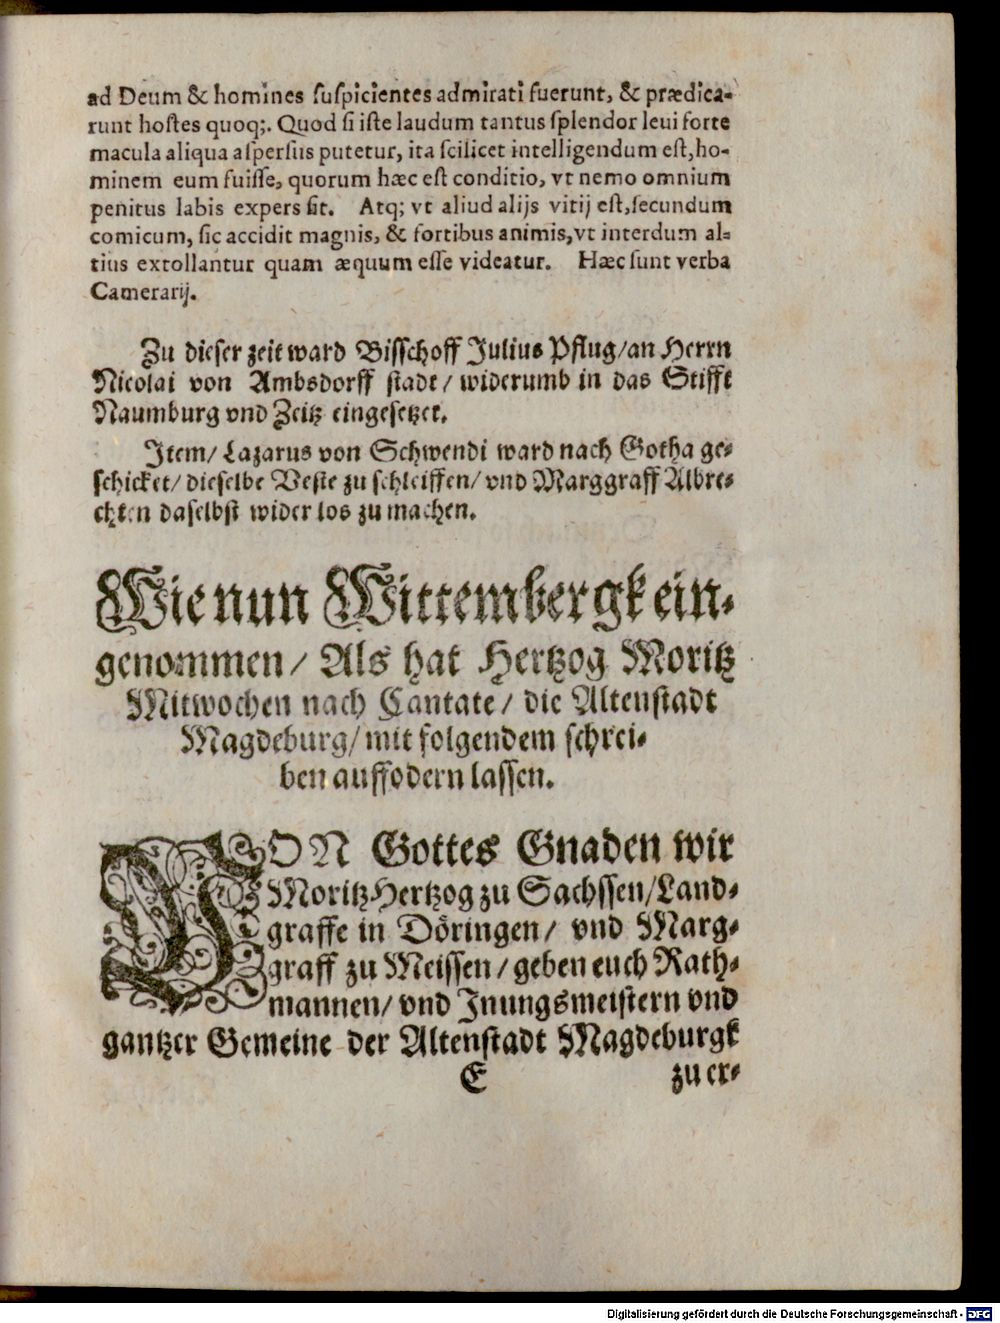 ad Deum & homines ſuſpicientes admirati fuerunt, & prædica-
runt hoſtes quoq;. Quod ſi iſte laudum tantus ſplendor leui forte
macula aliqua aſperſus putetur, ita ſcilicet intelligendum eſt, ho-
minem eum fuiſſe, quorum hæc eſt conditio, vt nemo omnium
penitus labis expers ſit. Atq; vt aliud alijs vitij eſt, ſecundum
comicum, ſic accidit magnis, & fortibus animis, vt interdum al-
tius extollantur quam æquum eſſe videatur. Hæc ſunt verba
Camerarij.
Zu dieſer zeit ward Biſſchoff Julius Pflug/ an Herrn
Nicolai von Ambsdorff ſtadt/ widerumb in das Stifft
Naumburg vnd Zeitz eingeſetzet.
Item/ Lazarus von Schwendi ward nach Gotha ge-
ſchicket/ dieſelbe Veſte zu ſchleiffen/ vnd Marggraff Albre-
chten daſelbſt wider los zu machen.
Wie nun Wittembergk ein-
genommen/ Als hat Hertzog Moritz
Mitwochen nach Cantate/ die Altenſtadt
Magdeburg/ mit folgendem ſchrei-
ben auffodern laſſen.
VON Gottes Gnaden wir
Moritz Hertzog zu Sachſſen/ Land-
graffe in Döringen/ vnd Marg-
graff zu Meiſſen/ geben euch Rath-
mannen/ vnd Inungsmeiſtern vnd
gantzer Gemeine der Altenſtadt Magdeburgk
E zu er-
Digitalisierung gefördert durch die Deutsche Forschungsgemeinschaft - DFG